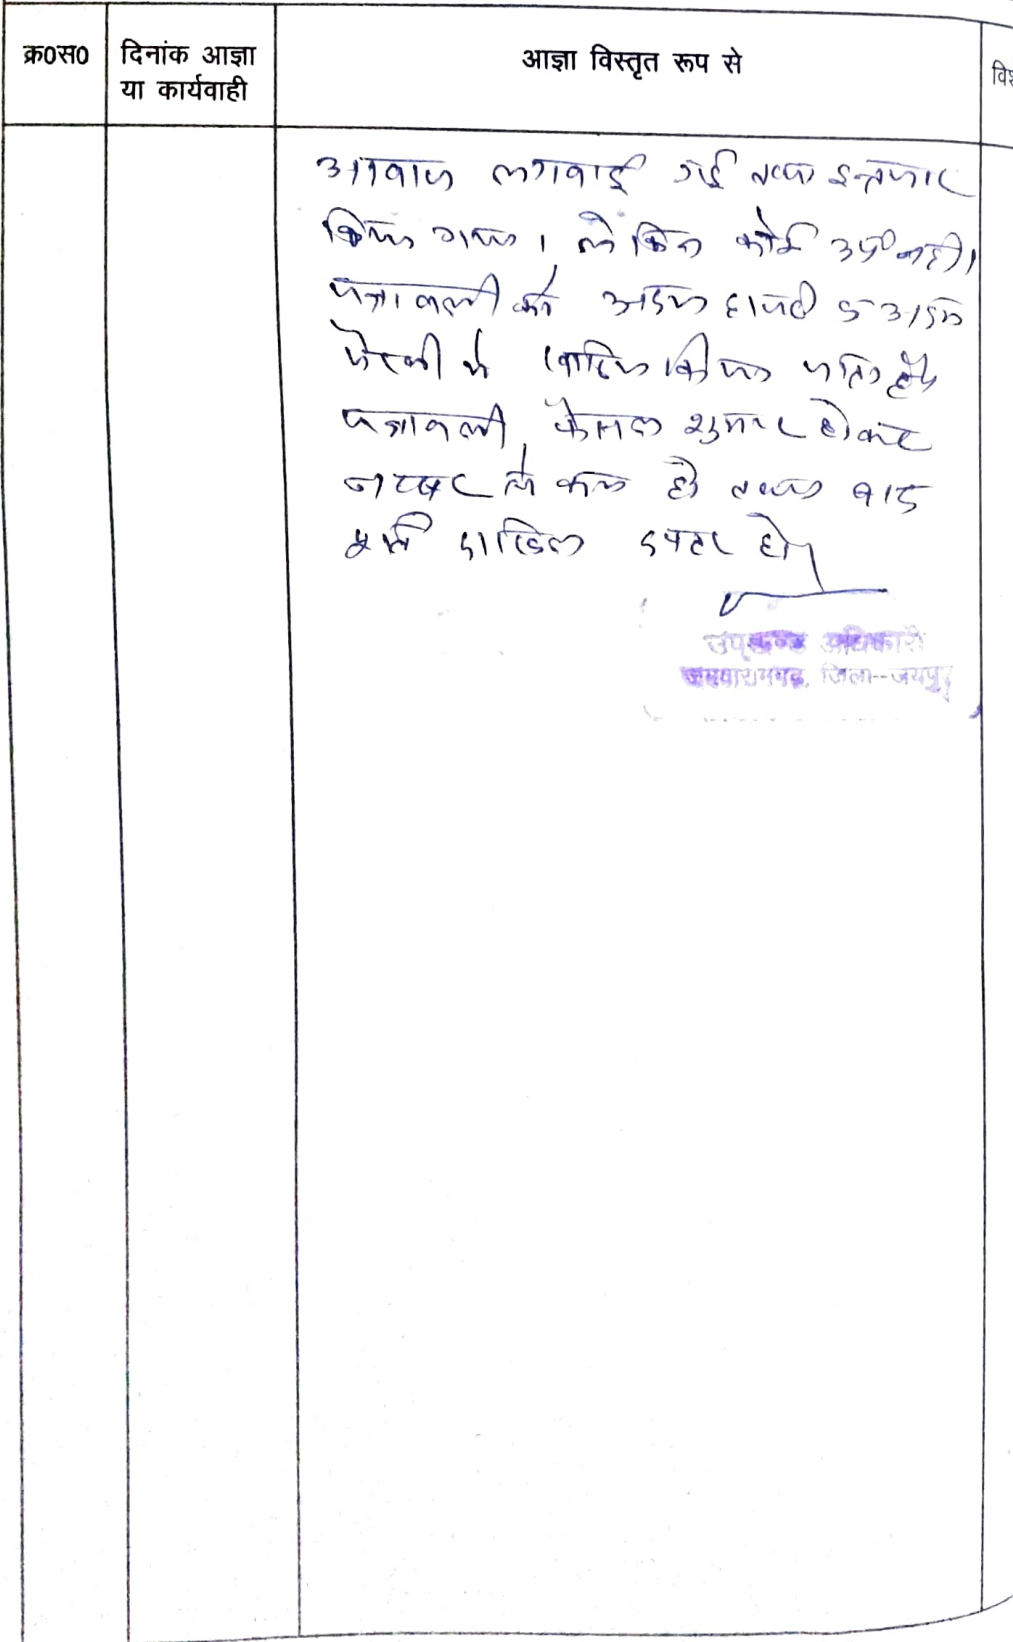 क्र0स0
दिनांक आज्ञा
या कार्यवाही
आज्ञा विस्तृत रूप से
आवाज लगवाई गई तथा इन्तजार
किया गया। लेकिन कोई उप0 नही।
पत्रावली को अदम हाजरी व अदम
पैरवी मे खारिज किया जाता है।
पत्रावली फैसल शुमार होकर
नम्बर से कम हो तथा बाद
पूर्ति दाखिल दफ्तर हो।
उपखण्ड अधिकारी
जमवारामगढ, जिला--जयपुर